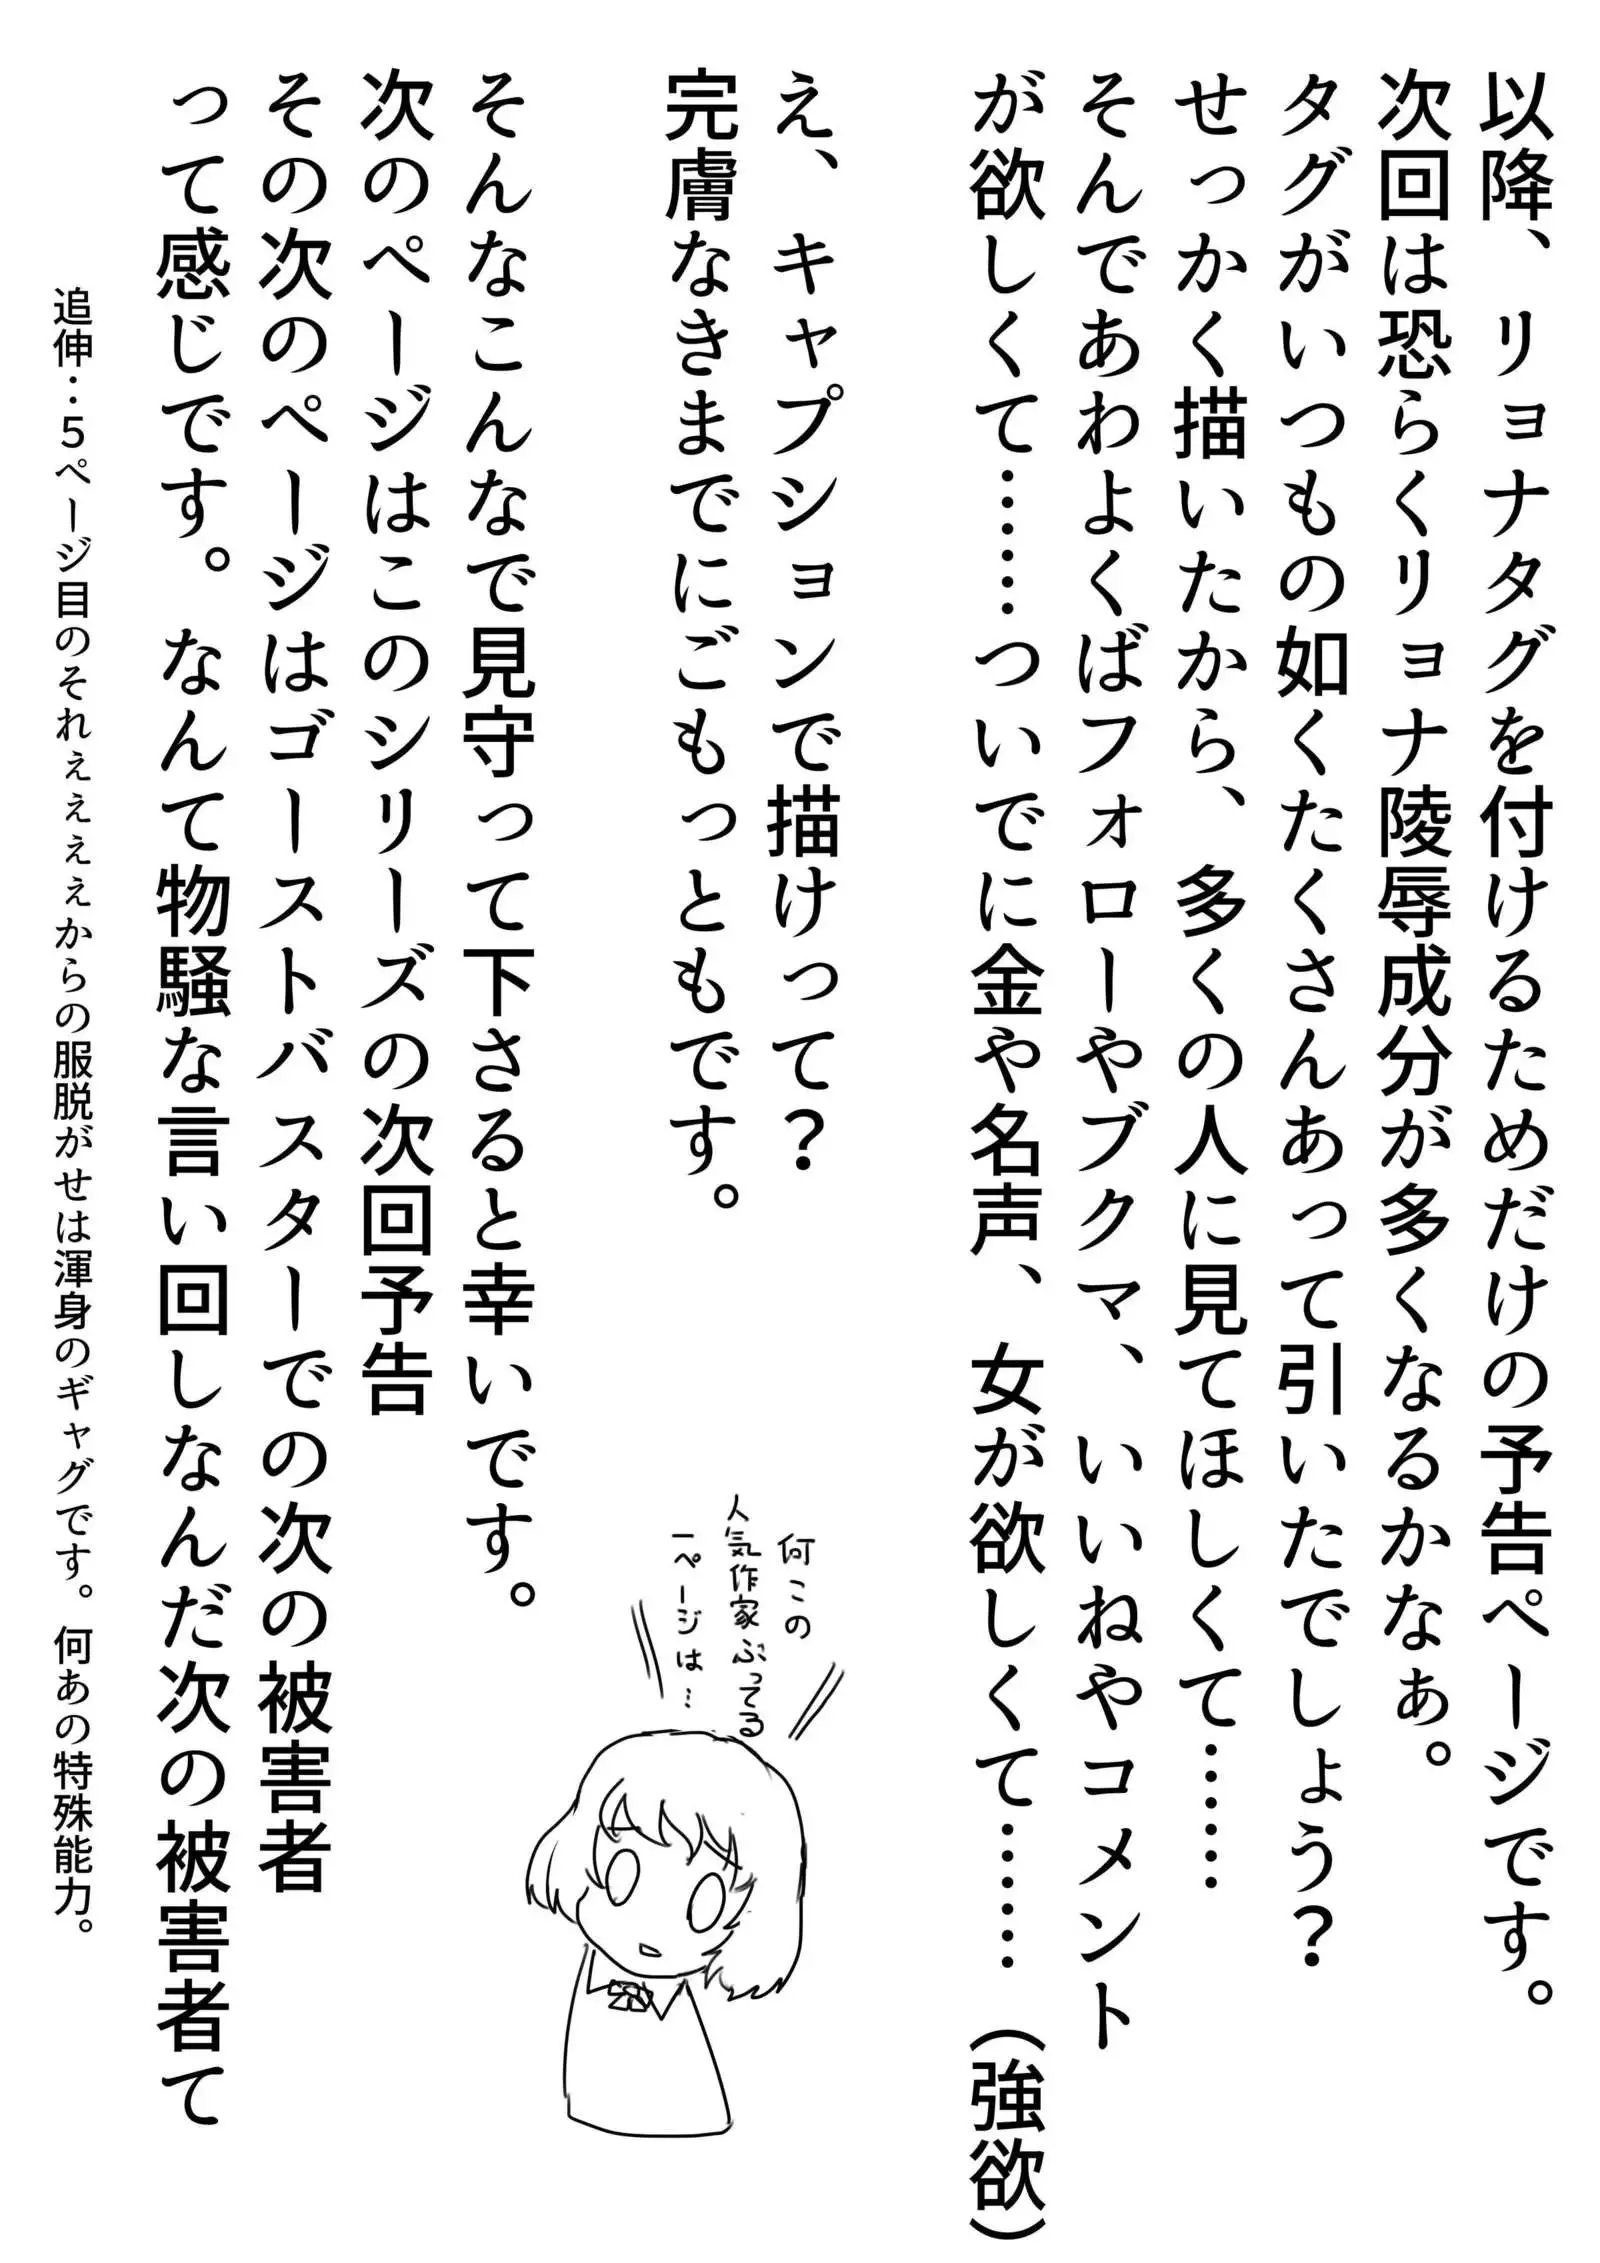 以降、リョナタグを付けるためだけの予告ページです。
次回は恐らくリョナ陵辱成分が多くなるかなぁ。
タグがいつもの如くたくさんあって引いたでしょう？
せっかく描いたから、多くの人に見てほしくて………
そんであわよくばフォローやブクマ、いいねやコメント
が欲しくて………ついでに金や名声、女が欲しくて………（強欲）
え、キャプションで描けって？
完膚なきまでにごもっともです。
そんなこんなで見守って下さると幸いです。
次のページはこのシリーズの次回予告
その次のページはゴーストバスターでの次の被害者
って感じです。なんて物騒な言い回しなんだ次の被害者て
追伸：５ページ目のそれぇぇぇぇからの服脱がせは渾身のギャグです。何あの特殊能力。
何この
人気作家ぶってる
一ページは…